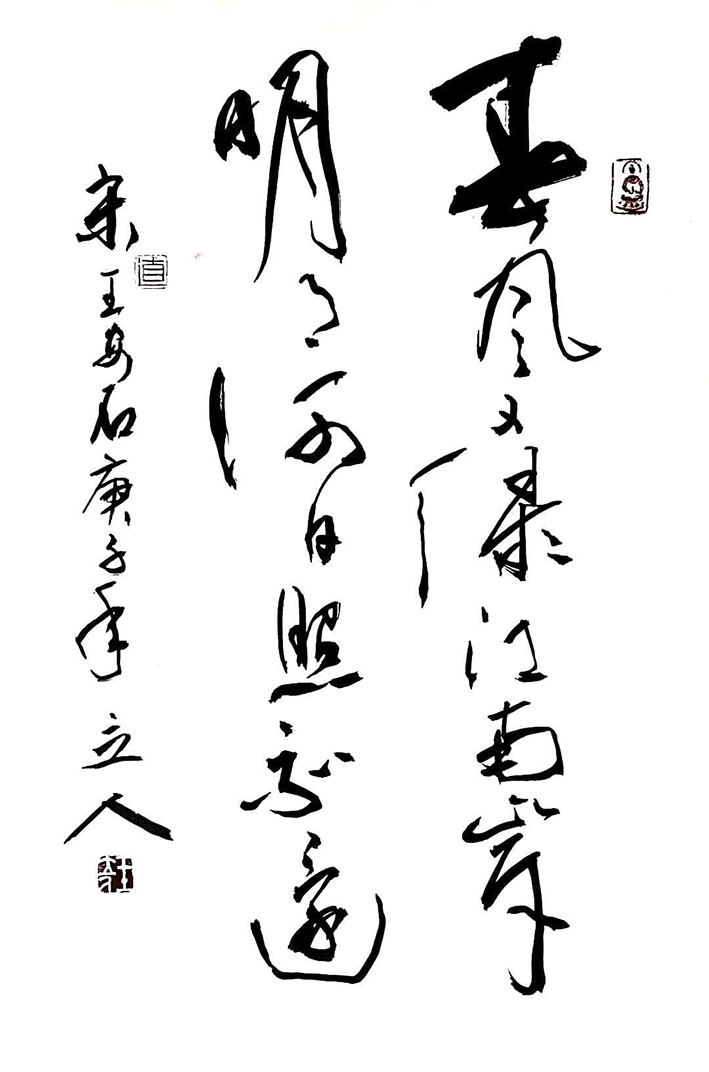 春风又绿江南岸
明月何日照我還
宋王安石庚子年 立人